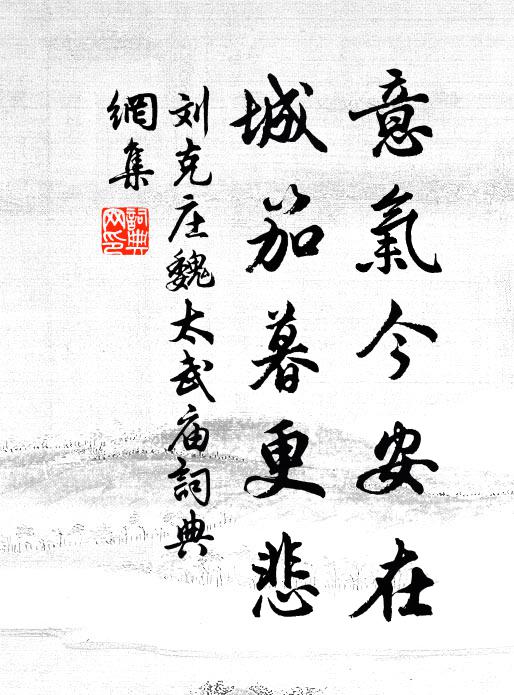 意氣今安在
城笳暮更悲
刘克庄魏太武庙詞典
網集
詞典
网印